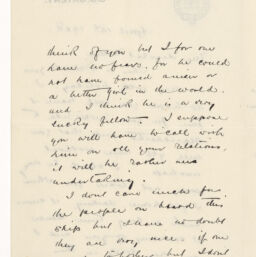 think of you but I for one
have no fears, for he could
not have found another or
a better girl in the world.
and I think he is a very
lucky fellow — I suppose
you will have to call with
him on all your relations.
it will be rather
undertaking.
I dont care much for
the people on board this
ship but I have no doubt
they are very nice. if one
but I dont